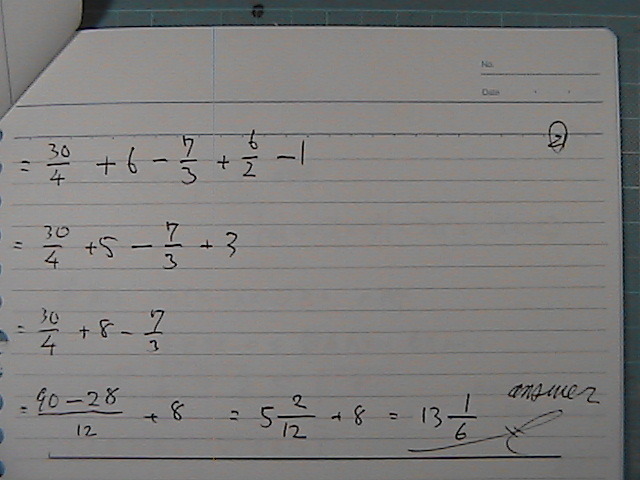 No.
Date
②
= 30/4 + 6 - 7/3 + 6/2 - 1
= 30/4 + 5 - 7/3 + 3
= 30/4 + 8 - 7/3
= (90 - 28)/12 + 8 = 5 2/12 + 8 = 13 1/6 answer